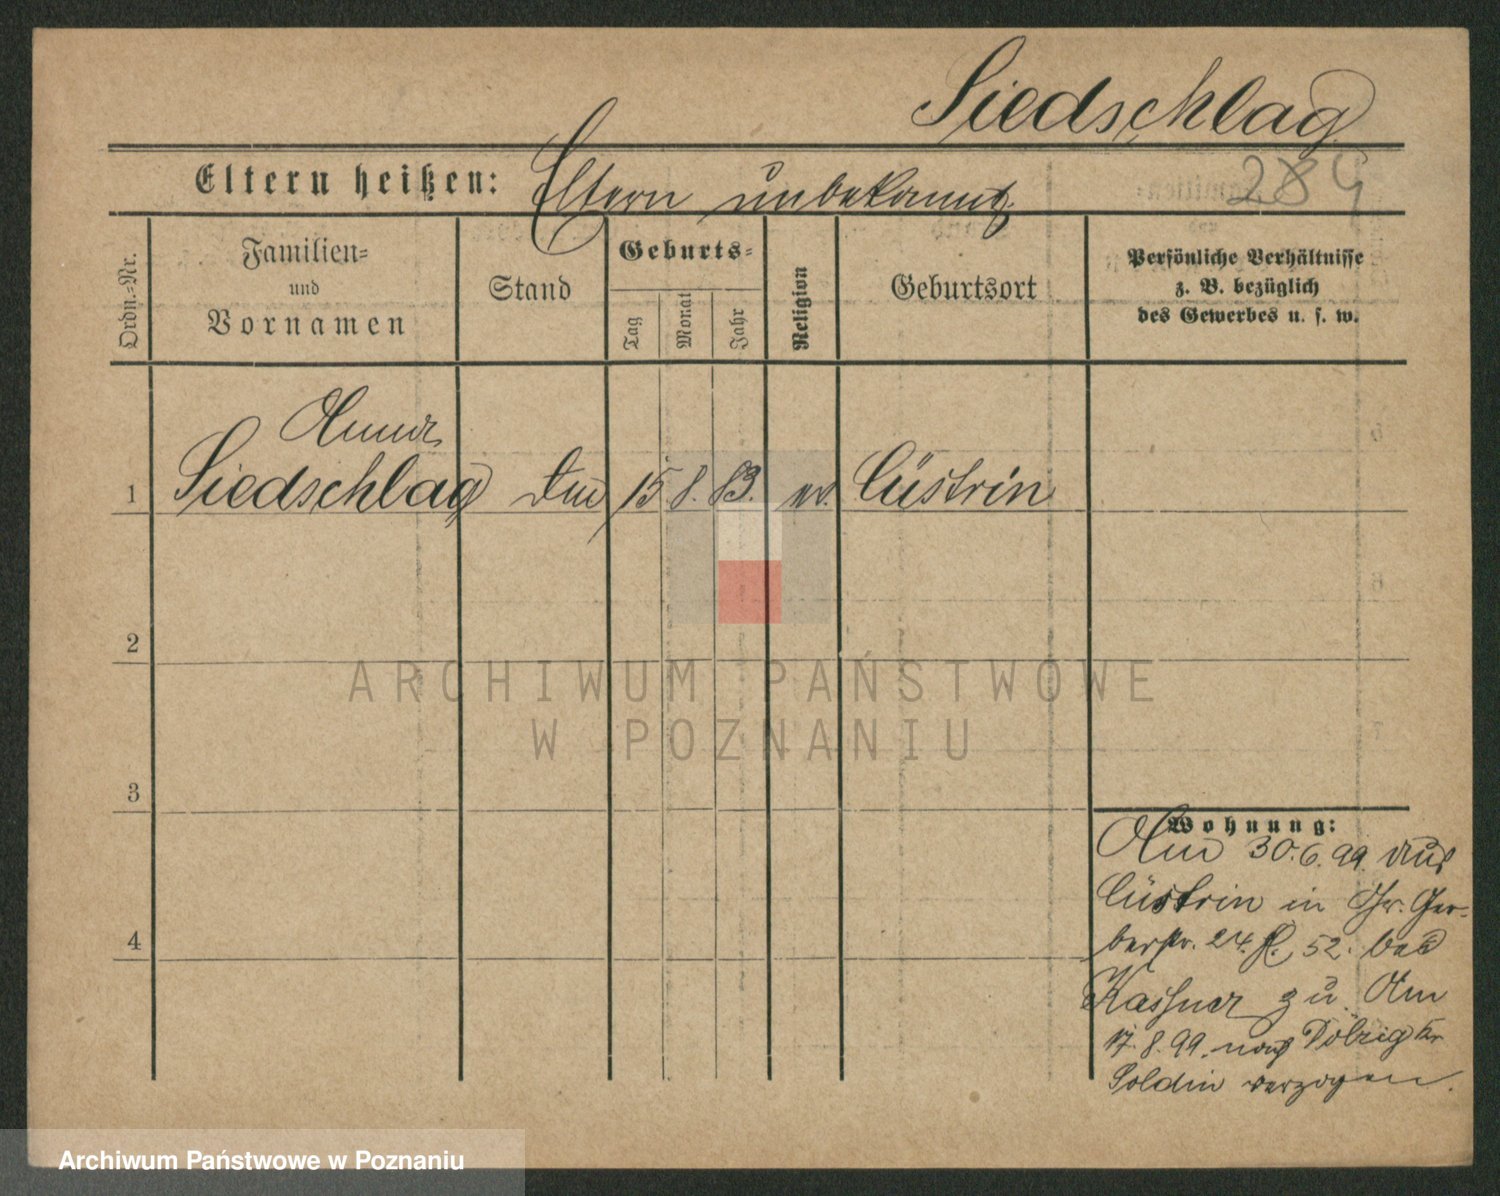 Siedschlag
284
Eltern heißen: Eltern unbekannt.
Ordn.-Nr.
Familien-
und
Vornamen
Stand
Geburts-
Tag
Monat
Jahr
Religion
Geburtsort
Persönliche Verhältnisse
z. B. bezüglich
des Gewerbes u. s. w.
Anna
1 Siedschlag 15 8. 83. ev. Cüstrin
2
3
4
Wohnung:
Am 30.6.99. aus
Cüstrin in Gr. Ger-
berstr. 24. 52. bei
zu. Am
17.8.99. nach Dölzig Kr
Soldin verzogen.
ARCHIWUM PAŃSTWOWE
W POZNANIU
Archiwum Państwowe w Poznaniu